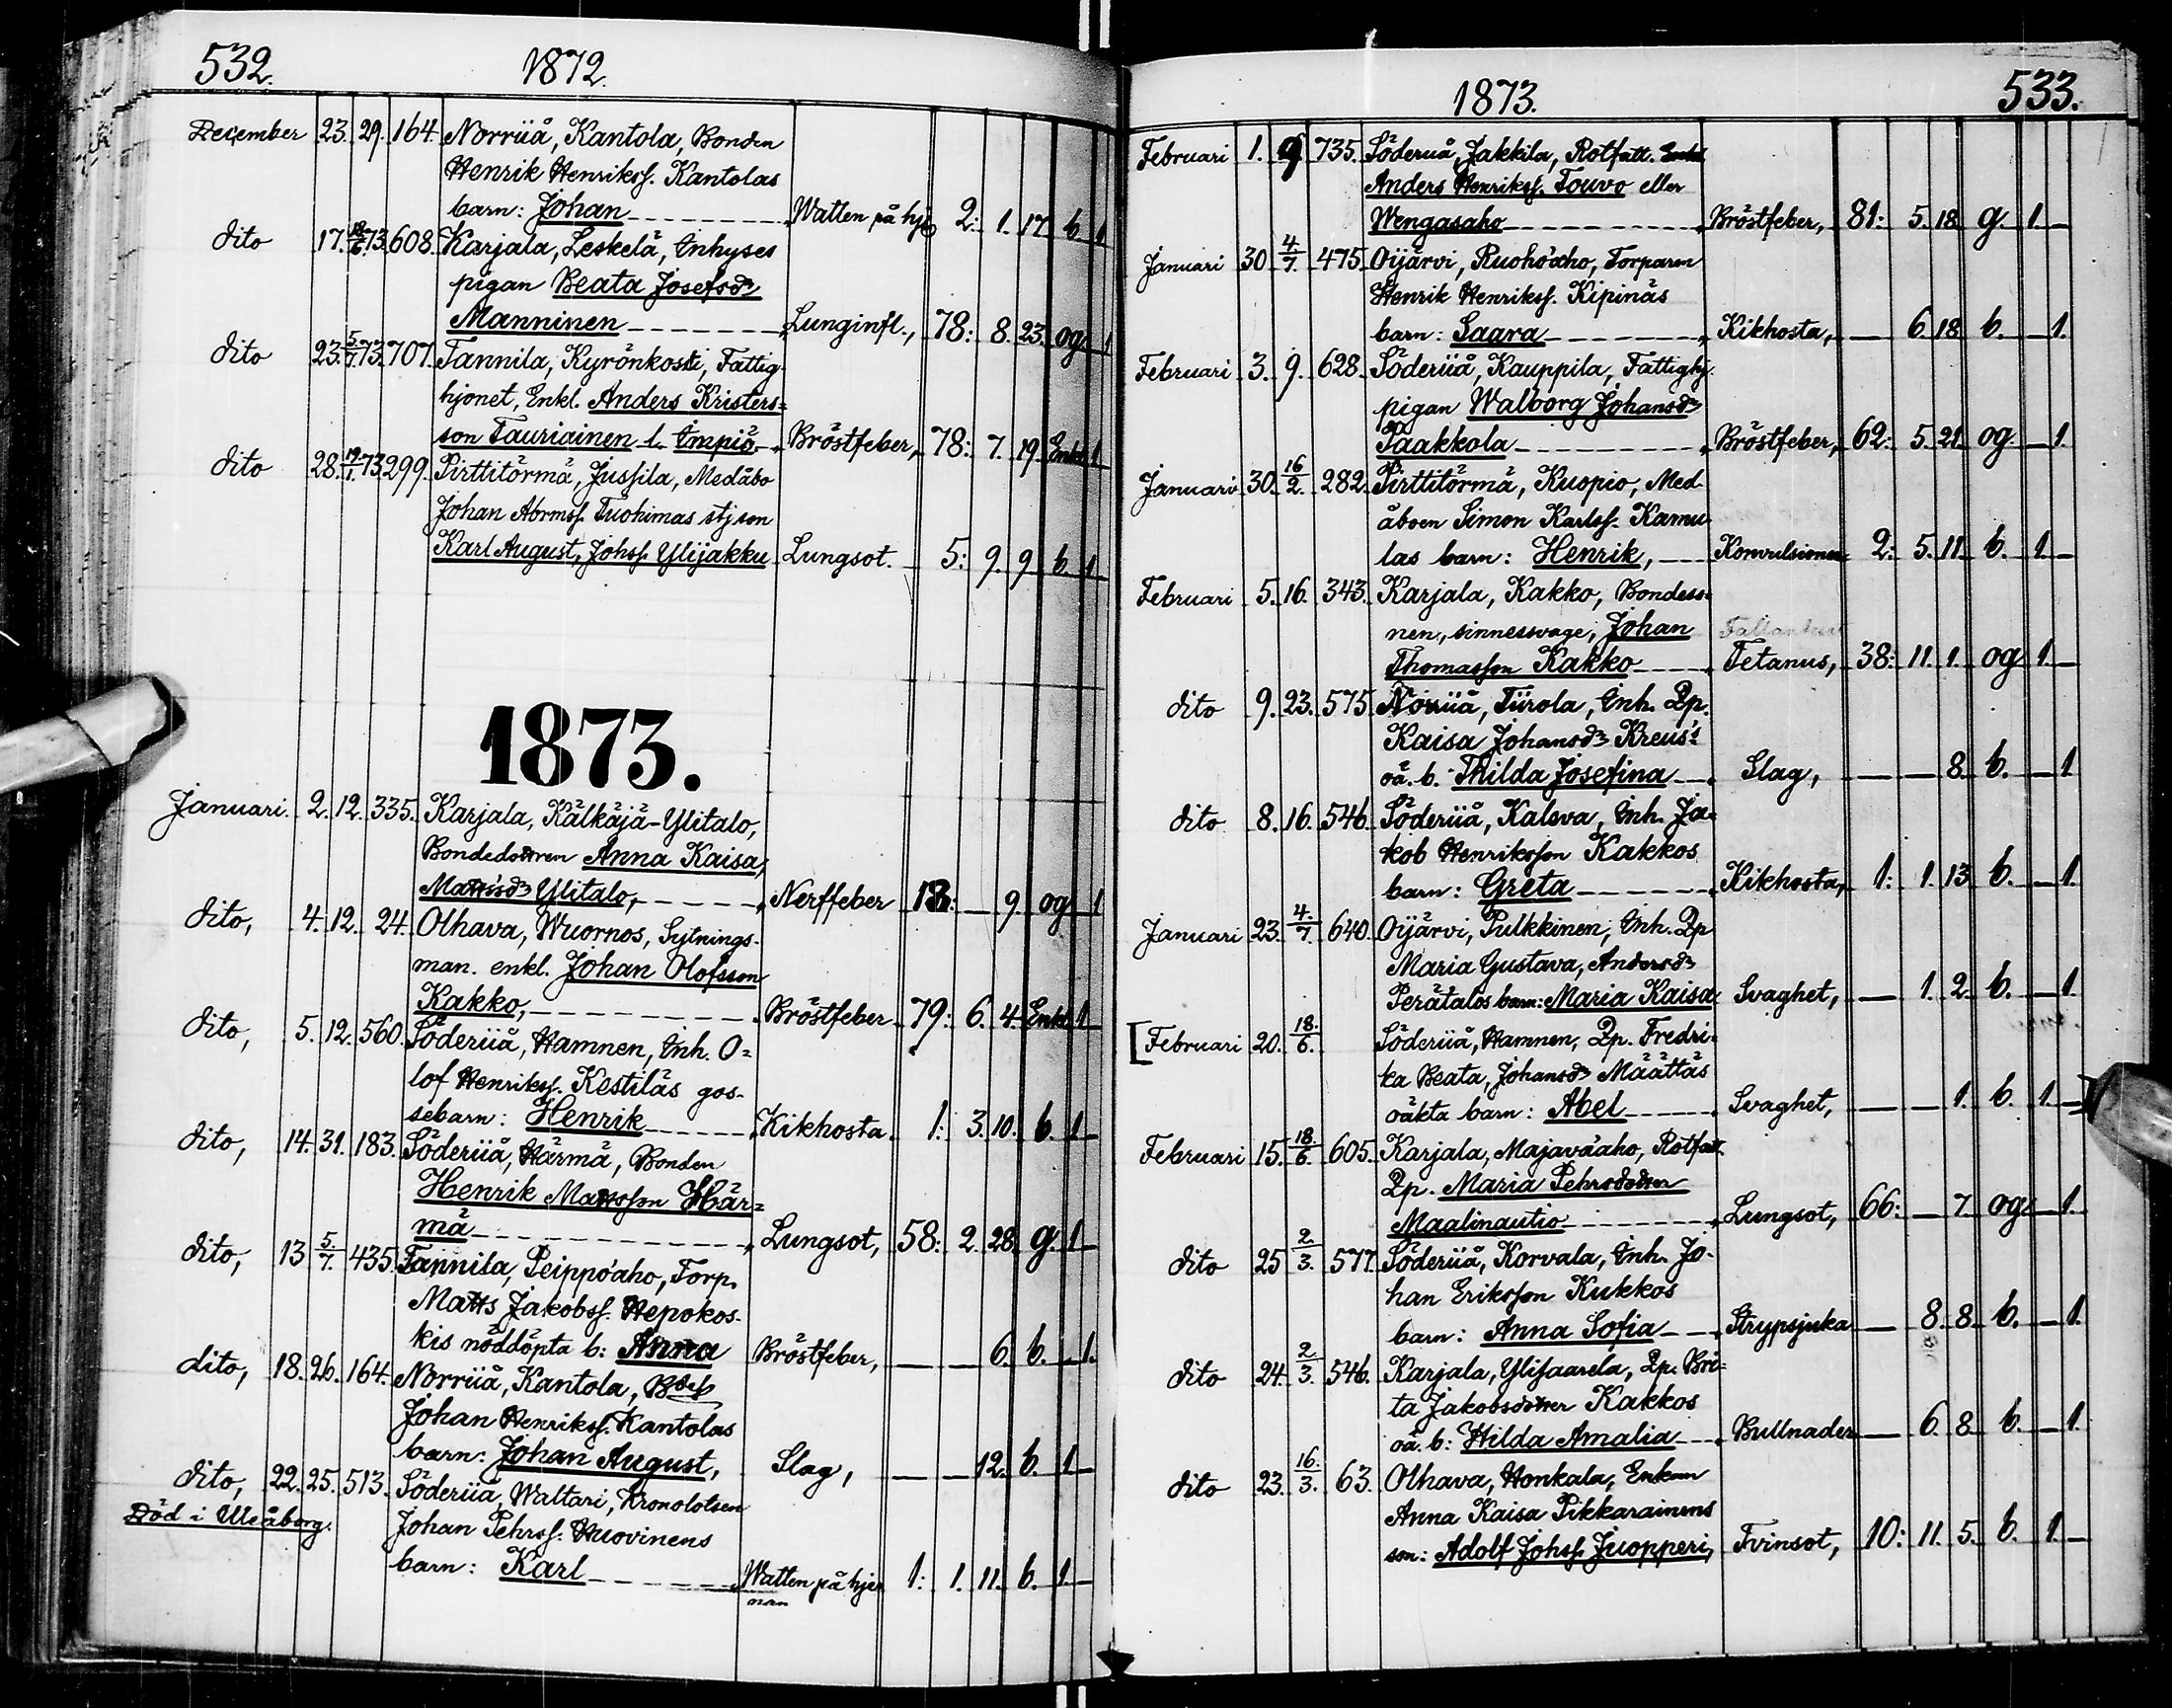 532. 1872.
December 23. 29. 164. Norriiå, Kantola, Bonden
Henrik Henrikss. Kantolas
barn: Johan Watten på hj 2: 1. 17. b. 1
dito 17. 18/6. 73. 608. Karjala, Leskelä, Inhyses
pigan Beata Josefsdr
Manninen Lunginfl., 78: 8. 23. og. 1
dito 23. 5/7. 73. 707. Tannila, Kyrönkoski, Fattig
hjonet, Enkl. Anders Kristers=
son Tauriainen l. Impiö Bröstfeber, 78: 7. 19. Enkl 1
dito 28. 73. 299. Pirttitörmä, Jussila, Medåbo
Johan Abrmss. Tuohimas stjson
Karl August, Johss. Ylijakku Lungsot. 5: 9. 9. b. 1
1873.
Januari. 2. 12. 335. Karjala, Kälkäjä-Ylitalo,
Bondedottren Anna Kaisa,
Mattsdr Ylitalo, Nerffeber 13: 9 og 1
dito, 4. 12. 24. Olhava, Wuornos, Sytnings-
man. enkl. Johan Olofsson
Kakko, Bröstfeber 79: 6. 4. Enkl 1
dito, 5. 12. 560. Söderiiå, Hamnen, Inh. O=
lof Henrikss. Kestiläs gos-
sebarn: Henrik Kikhosta 1: 3. 10. b. 1
dito, 14. 31. 183. Söderiiå, Härmä, Bonden
Henrik Mattsson Här=
mä Lungsot, 58: 2. 28. g. 1
dito, 13 5/7. 435. Tannila, Peippo'aho, Torp.
Matts Jakobss. Hepokos-
kis nöddöpta b: Anna Bröstfeber, 6. b. 1.
dito, 18. 26. 164. Norriiå, Kantola,
Johan Henrikss. Kantolas
barn: Johan August, Slag, 12. b. 1
dito, 22. 25. 513. Söderiiå, Waltari, Kronolotsen
Död i Uleåborg. Johan Pehrss. Huovinens
barn: Karl Watten på hjer 1: 1. 11. b. 1
nan
1873. 533.
Februari 1. 9. 735. Söderiiå, Jakkila, Rotfatt.
Anders Henrikss. Touvo eller
Wengasaho Bröstfeber, 81: 5. 18. g. 1.
Januari 30 4/7. 475. Oijärvi, Ruoho'aho, Torparen
Henrik Henrikss. Kipinäs
barn: Saara Kikhosta, 6. 18. b. 1.
Februari 3. 9. 628. Söderiiå, Kauppila, Fattighj.
pigan Walborg Johansdr
Paakkola Bröstfeber, 62: 5. 21. og. 1.
Januari 30. 16/2. 282. Pirttitörmä, Kuopio, Med
åboen Simon Karlss. Kamu
las barn: Henrik, Konvulsioner 2: 5. 11. b. 1.
Februari 5. 16. 343. Karjala, Kakko, Bondeso-
nen, sinnessvage, Johan
Thomasson Kakko Tetanus, 38: 11. 1. og 1.
dito 9. 23. 575. Norriiå, Tiirola, Inh. Qp.
Kaisa Johansdr Kreus's
oä. b. Thilda Josefina Slag, 8. b. 1
dito 8. 16. 546. Söderiiå, Kaleva, Inh. Ja-
kob Henriksson Kakkos
barn: Greta Kikhosta, 1: 1. 13. b. 1.
Januari 23. 4/7. 640. Oijärvi, Pulkkinen, Inh. Qp
Maria Gustava, Andersdr
Perätalos barn: Maria Kaisa Svaghet, 1. 2. b. 1.
[Februari 20. 18/6. Söderiiå, Hamnen, Qp. Fredri-
ka Beata, Johansdr Määttäs
oäkta barn: Abel Svaghet, 1. b. 1.
Februari 15. 18/6. 605. Karjala, Majava'aho, Rotfatt.
Qp. Maria Pehrsdotter
Maalinautio Lungsot, 66: 7. og 1.
dito 25 2/3. 577. Söderiiå, Korvala, Inh. Jo-
han Eriksson Kukkos
barn: Anna Sofia Strypsjuka 8. 8. b. 1.
dito 24. 2/3. 546. Karjala, Ylisaarela, Qp. Bri-
ta Jakobsdotter Kakkos
oä. b: Hilda Amalia Bullnader 6. 8. b. 1.
dito 23. 16/3. 63. Olhava, Honkala, Enkan
Anna Kaisa Pikkarainens
son: Adolf Johss. Juopperi, Tvinsot, 10: 11. 5. b. 1.